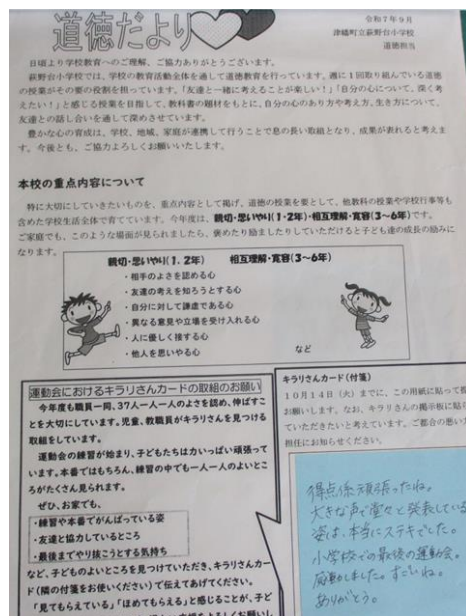 道徳だより
令和７年９月
津幡町立萩野台小学校
道徳担当
日頃より学校教育へのご理解、ご協力ありがとうございます。
萩野台小学校では、学校の教育活動全体を通して道徳教育を行っています。週に１回取り組んでいる道徳
の授業がその要の役割を担っています。「友達と一緒に考えることが楽しい！」「自分の心について、深く考
えたい！」と感じる授業を目指して、教科書の題材をもとに、自分の心のあり方や考え方、生き方について、
友達との話し合いを通して深めさせています。
豊かな心の育成は、学校、地域、家庭が連携して行うことで息の長い取組となり、成果が表れると考えま
す。今後とも、ご協力よろしくお願いいたします。
本校の重点内容について
特に大切にしていきたいものを、重点内容として掲げ、道徳の授業を要として、他教科の授業や学校行事等も
含めた学校生活全体で育てています。今年度は、親切・思いやり(１・２年)・相互理解・寛容(３～６年)です。
ご家庭でも、このような場面が見られましたら、褒めたり励ましたりしていただけると子ども達の成長の励みに
なります。
親切・思いやり(１．２年)　相互理解・寛容(３～６年)
・相手のよさを認める心
・友達の考えを知ろうとする心
・自分に対して謙虚である心
・異なる意見や立場を受け入れる心
・人に優しく接する心
・他人を思いやる心　など
運動会におけるキラリさんカードの取組のお願い
今年度も職員一同、37人一人一人のよさを認め、伸ばすこ
とを大切にしています。児童、教職員がキラリさんを見つける
取組をしています。
運動会の練習が始まり、子どもたちは力いっぱい頑張って
います。本番ではもちろん、練習の中でも一人一人のよいとこ
ろがたくさん見られます。
ぜひ、お家でも、
・練習や本番でがんばっている姿
・友達と協力しているところ
・最後までやり抜こうとする気持ち
など、子どものよいところを見つけていただき、キラリさんカー
ド(隣の付箋をお使いください)で伝えてあげてください。
「見てもらえている」「ほめてもらえる」と感じることが、子ど
キラリさんカード(付箋)
１０月１４日（火）までに、この用紙に貼って
お願いします。なお、キラリさんの掲示板に貼ら
ていただきたいと考えています。ご都合の悪い
担任にお知らせください。
得点係頑張ったね。
大きな声で堂々と発表している
姿は、本当にステキでした。
小学校での最後の運動会。
感動しました。すごいね。
ありがとう。